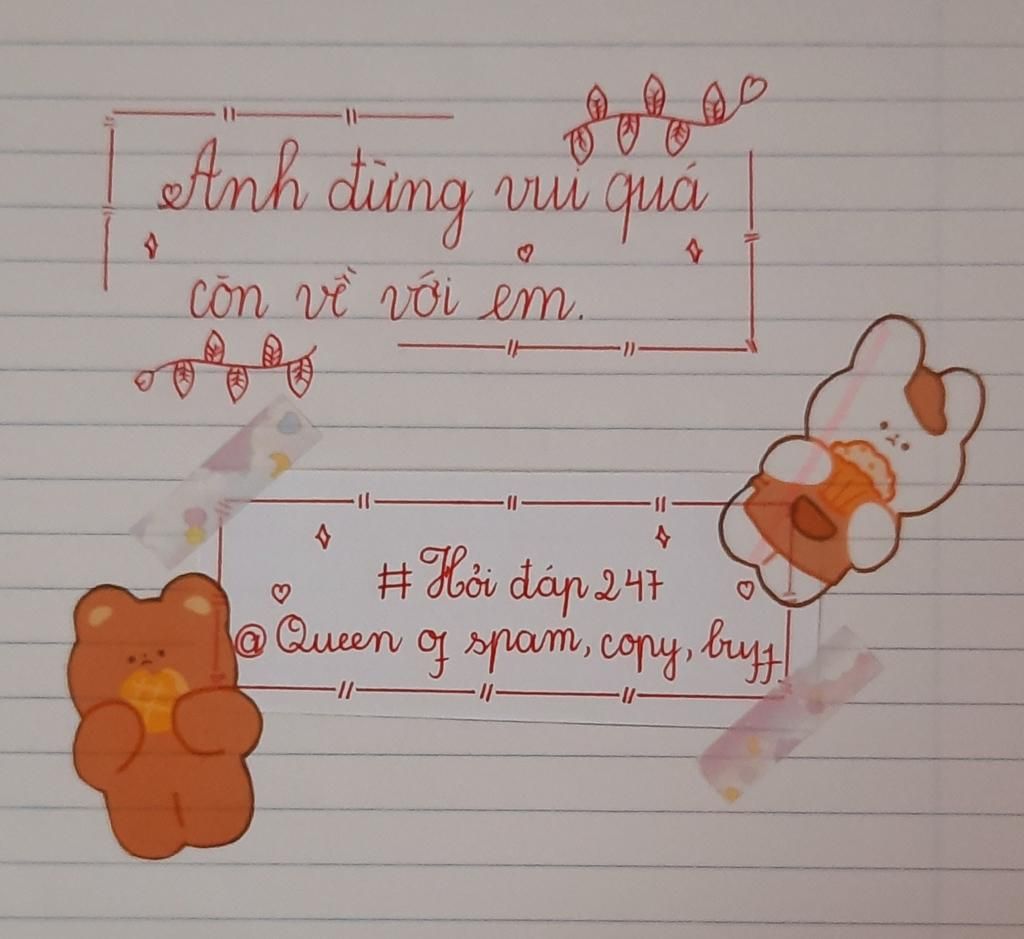 Anh đừng vui quá
còn về với em.
# Hỏi đáp 247
@ Queen of spam, copy, buff